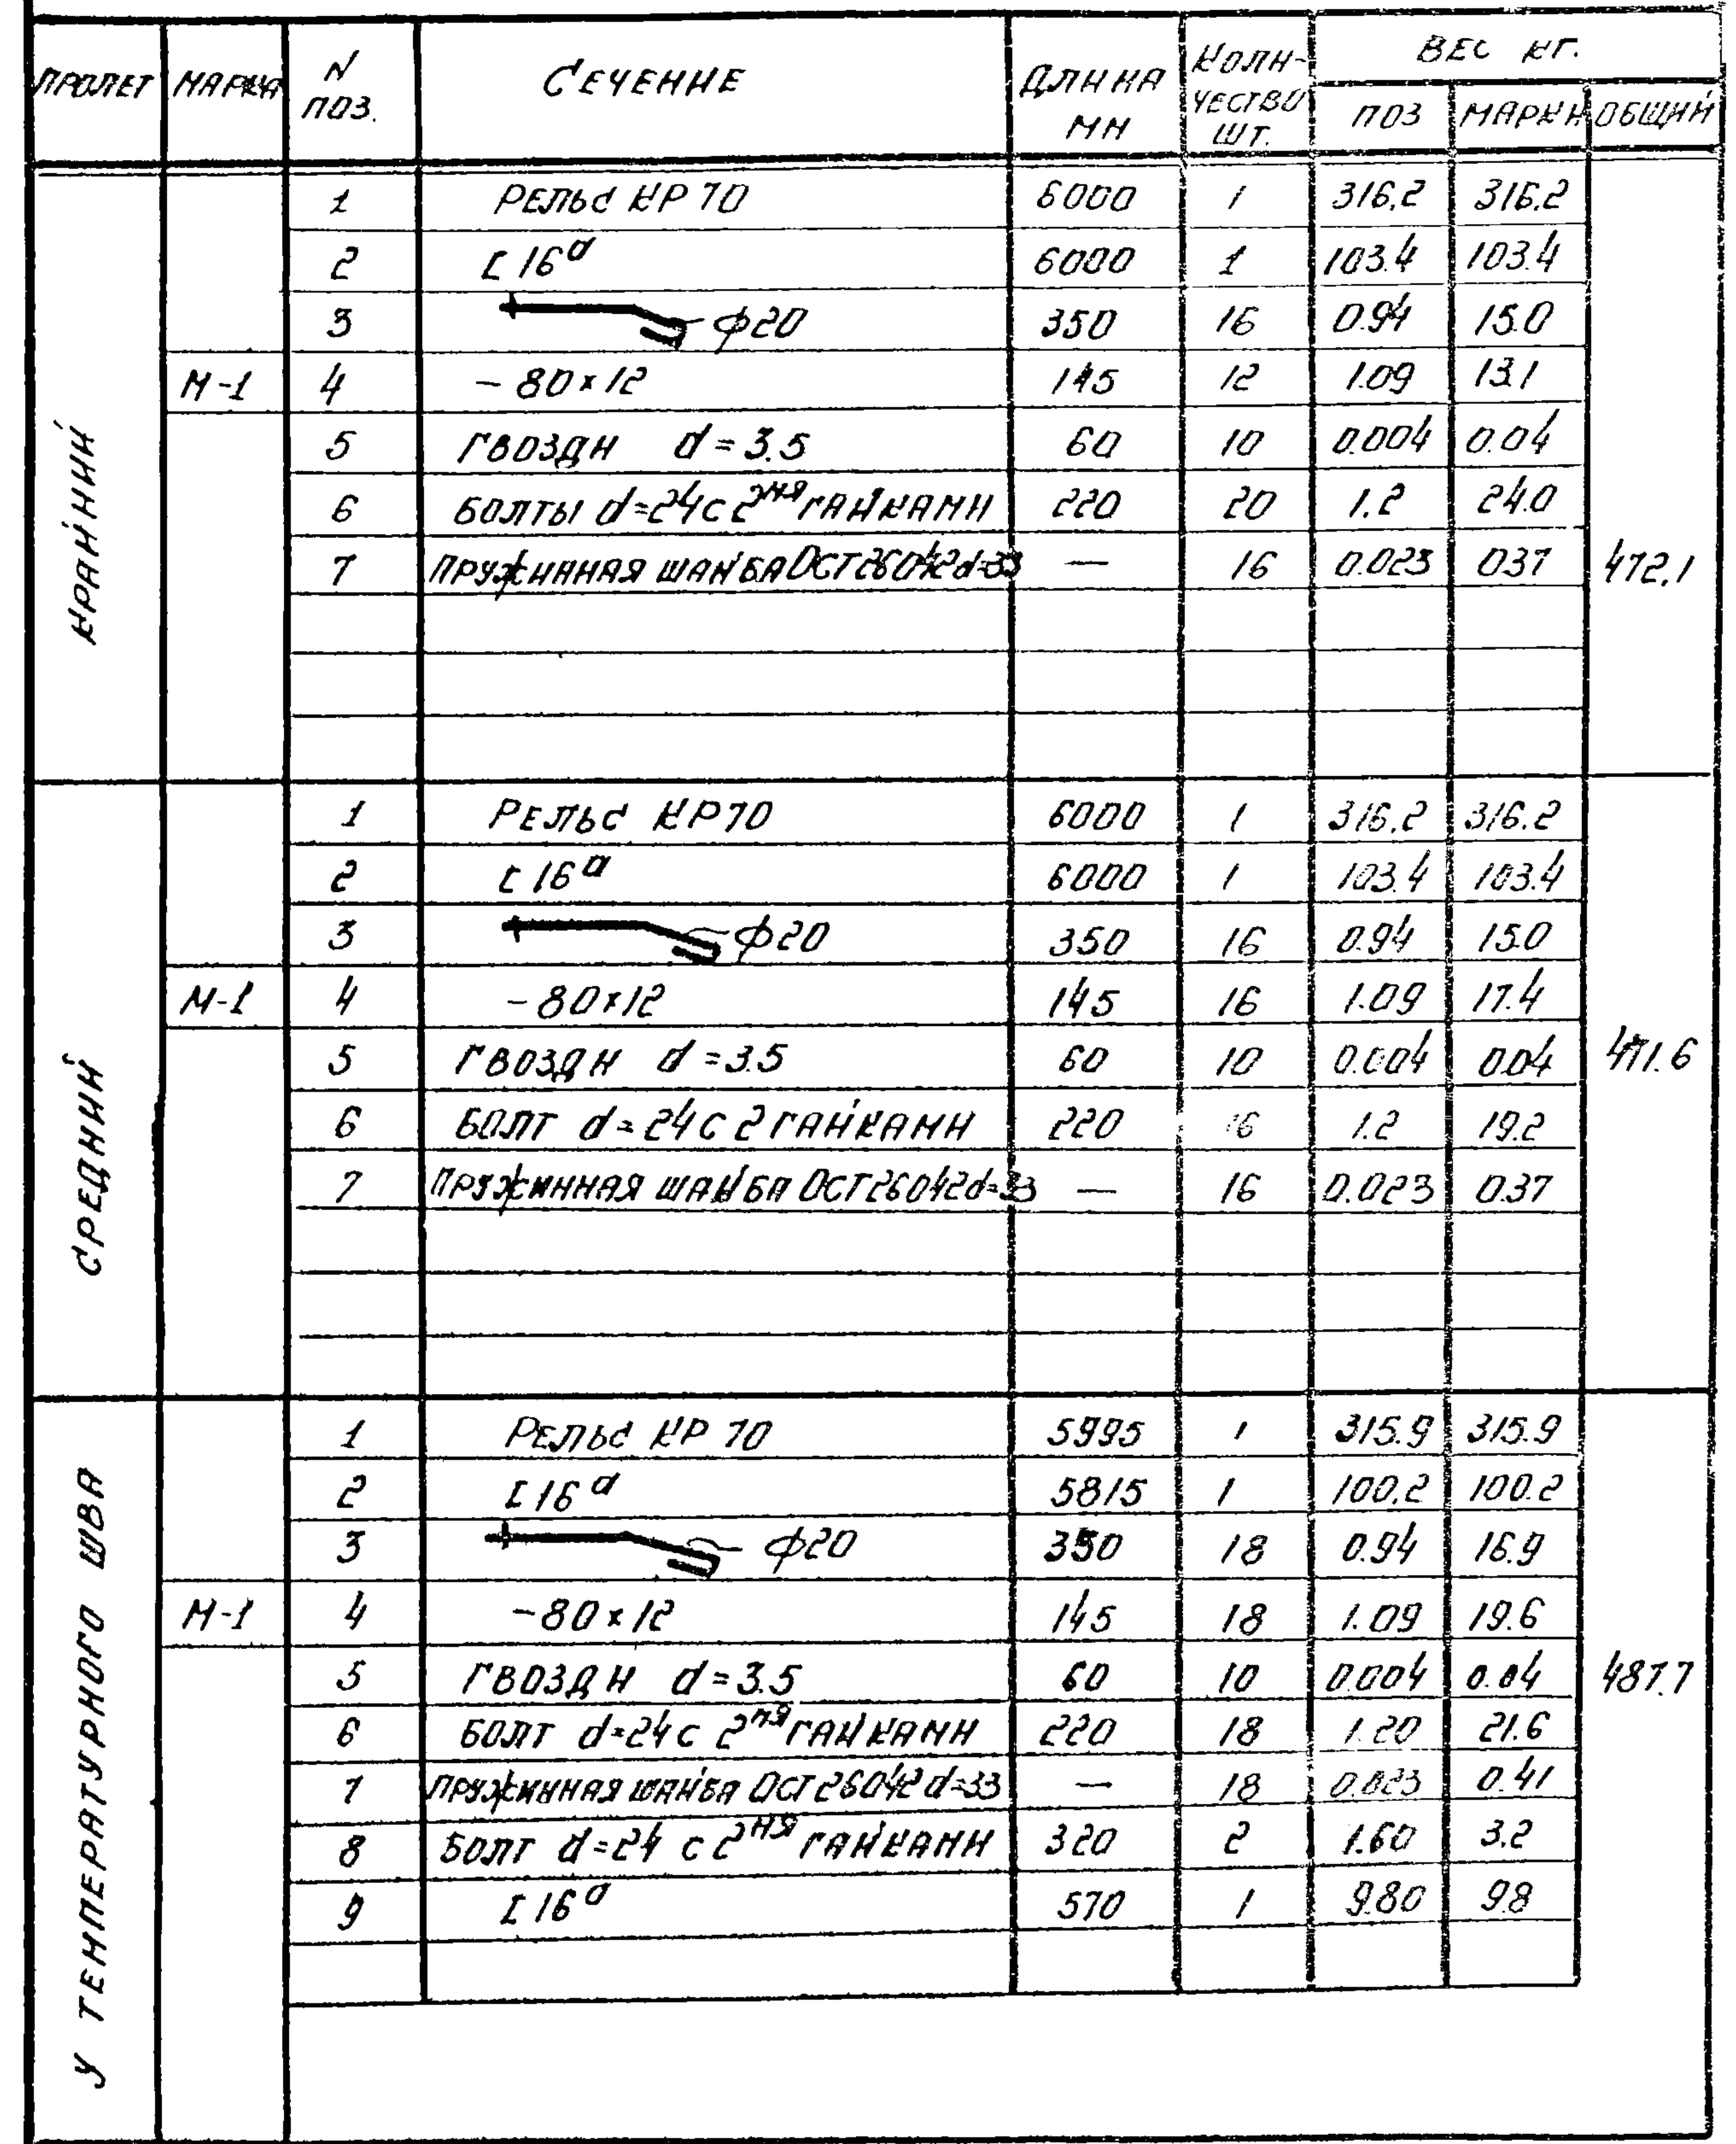 ПРОЛЕТ МАРКА N ПОЗ. СЕЧЕНИЕ ДЛИНА ММ КОЛИ-ЧЕСТВО ШТ. ВЕС КГ.
ПОЗ МАРКИ ОБЩИЙ
КРАЙНИЙ
М-1
1 РЕЛЬС КР 70 6000 1 316.2 316.2
2 [ 16а 6000 1 103.4 103.4
3 ф20 350 16 0.94 15.0
4 - 80×12 145 12 1.09 13.1
5 ГВОЗДИ d = 3.5 60 10 0.004 0.04
6 БОЛТЫ d=24 С 2мя ГАЙКАМИ 220 20 1.2 24.0
7 ПРУЖИННАЯ ШАЙБА ОСТ 26042 d=33 — 16 0.023 0.37
472.1
СРЕДНИЙ
М-1
1 РЕЛЬС КР 70 6000 1 316.2 316.2
2 [ 16а 6000 1 103.4 103.4
3 ф20 350 16 0.94 15.0
4 - 80×12 145 16 1.09 17.4
5 ГВОЗДИ d = 3.5 60 10 0.004 0.04
6 БОЛТ d = 24 С 2 ГАЙКАМИ 220 16 1.2 19.2
7 ПРУЖИННАЯ ШАЙБА ОСТ 26042 d=33 — 16 0.023 0.37
471.6
У ТЕМПЕРАТУРНОГО ШВА
М-1
1 РЕЛЬС КР 70 5995 1 315.9 315.9
2 [ 16а 5815 1 100.2 100.2
3 ф20 350 18 0.94 16.9
4 - 80×12 145 18 1.09 19.6
5 ГВОЗДИ d = 3.5 60 10 0.004 0.04
6 БОЛТ d=24 С 2мя ГАЙКАМИ 220 18 1.20 21.6
7 ПРУЖИННАЯ ШАЙБА ОСТ 26042 d=33 — 18 0.023 0.41
8 БОЛТ d=24 С 2мя ГАЙКАМИ 320 2 1.60 3.2
9 [ 16а 570 1 9.80 9.8
487.7